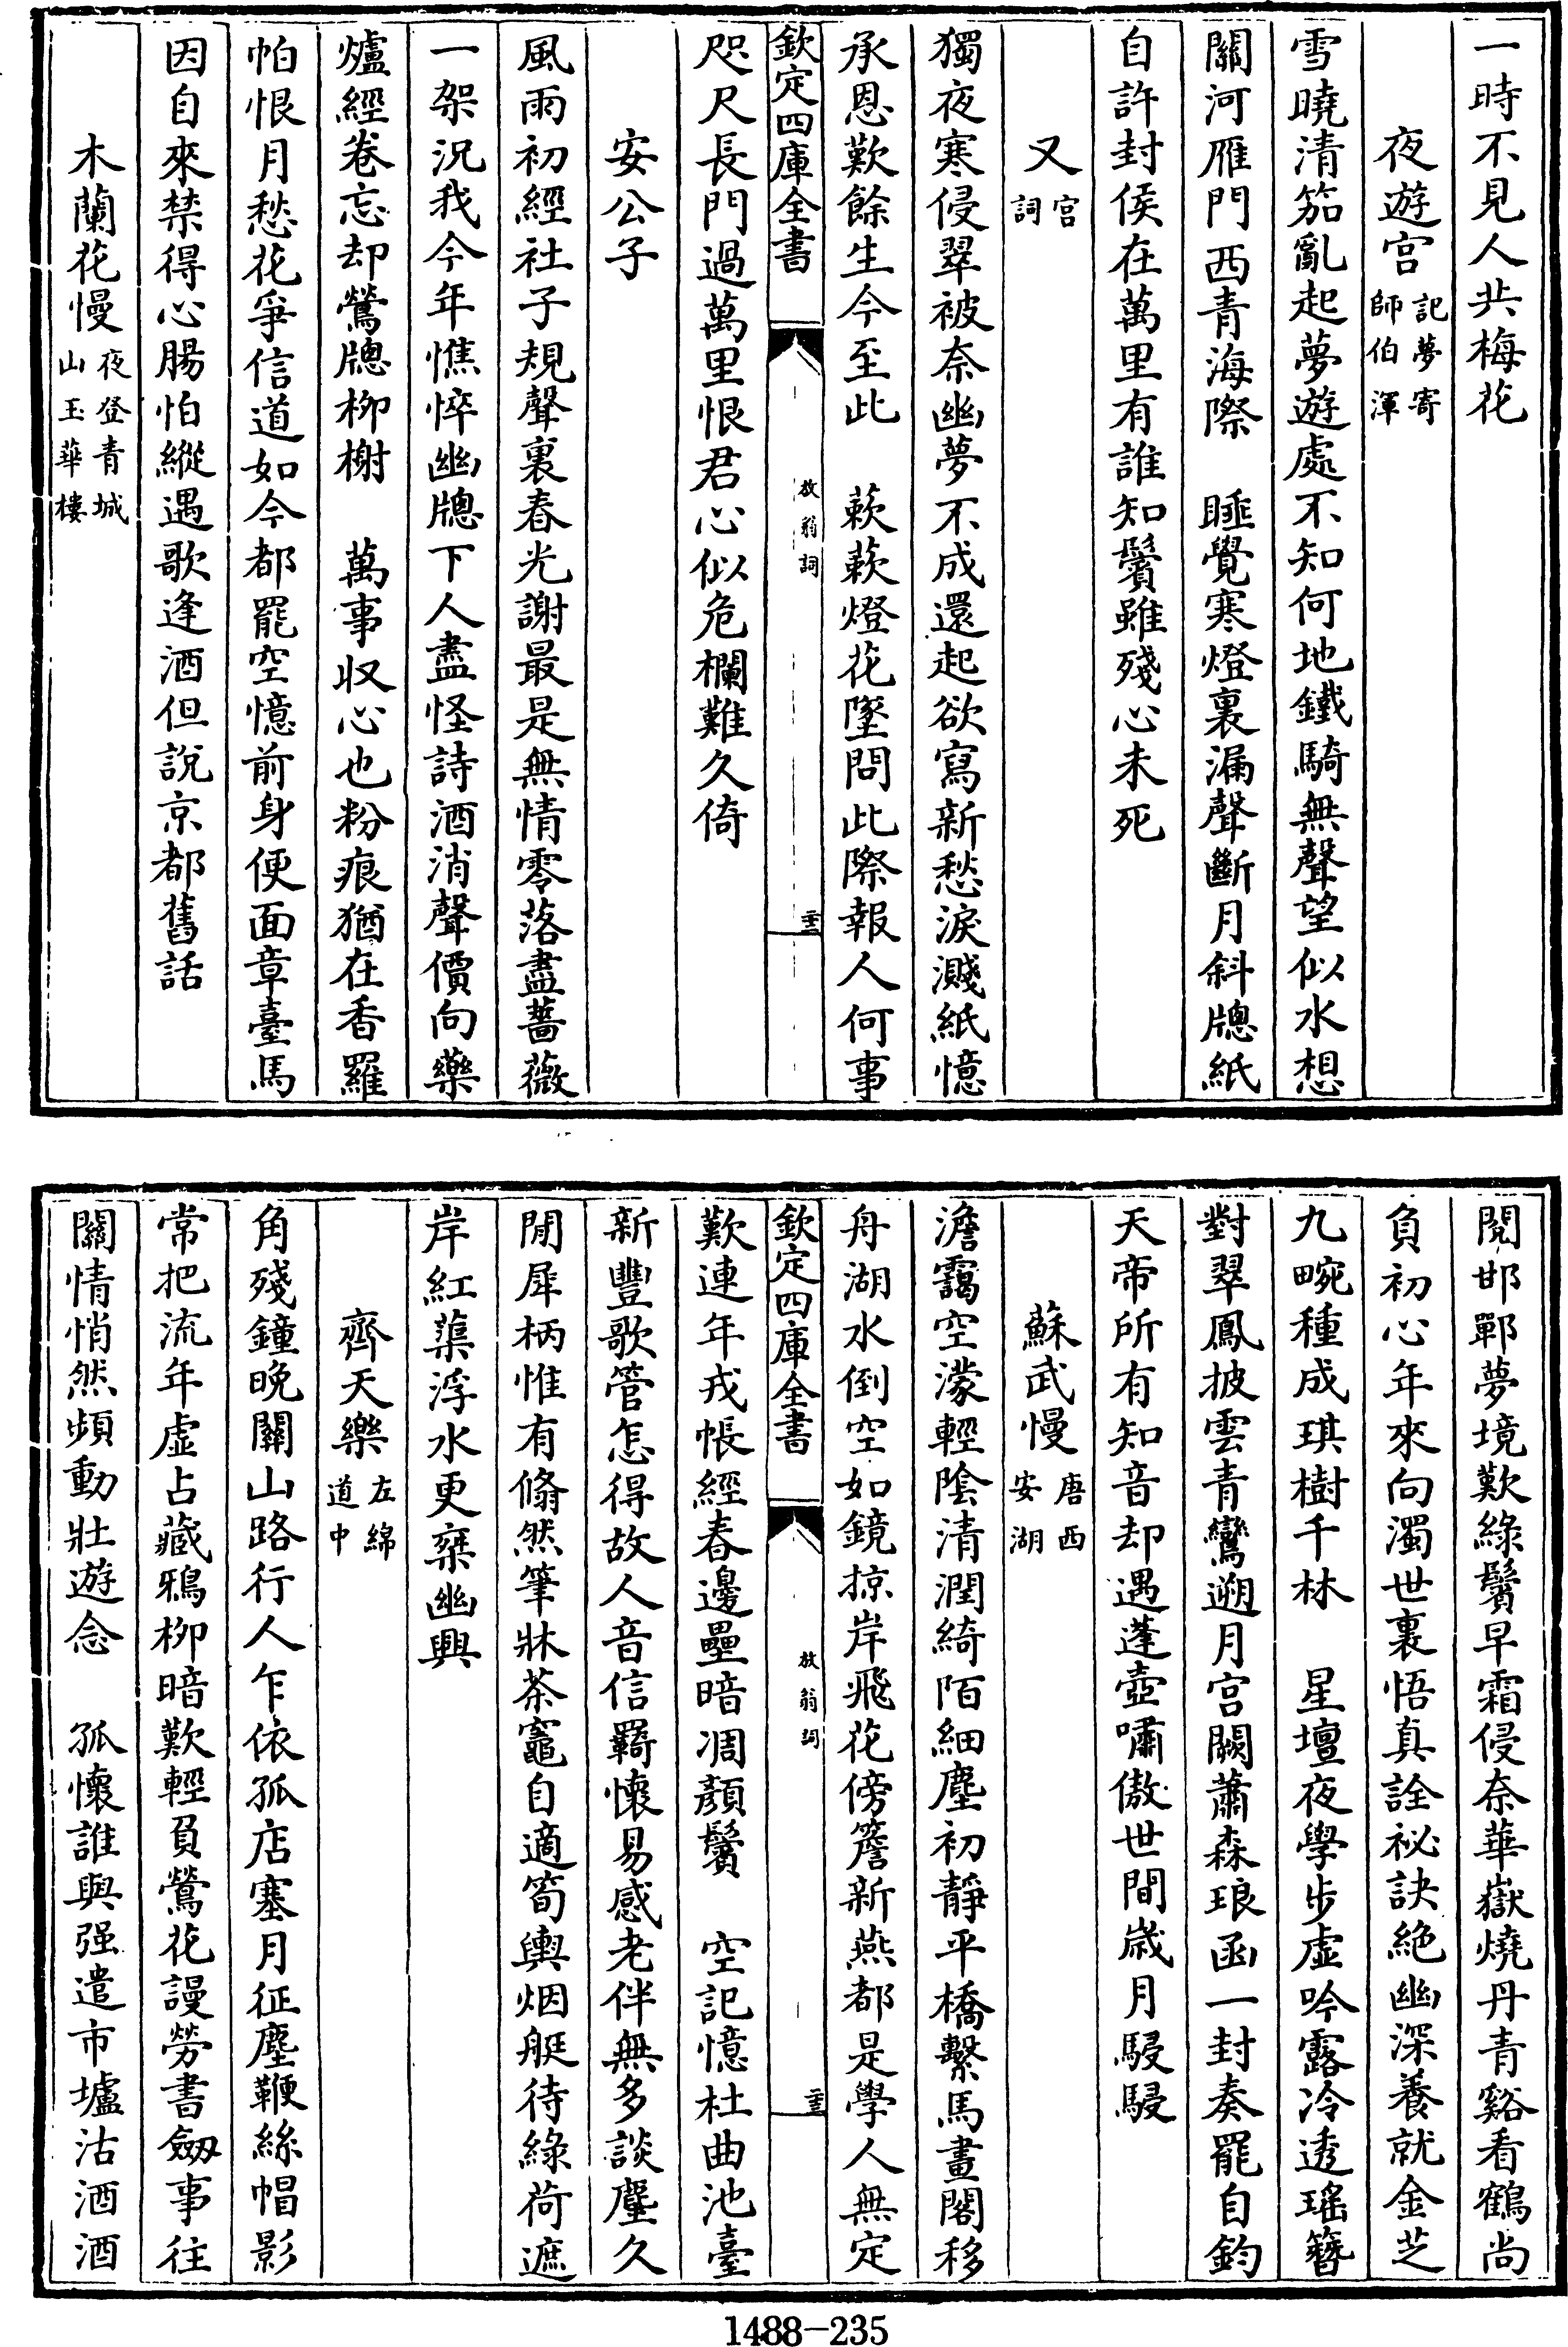 一時不見人共梅花
夜遊宫記夢寄師伯渾
雪曉清笳亂起夢遊處不知何地鐵騎無聲望似水想
關河雁門西青海際　睡覺寒燈裏漏聲斷月斜牕紙
自許封侯在萬里有誰知鬢雖殘心未死
又宫詞
獨夜寒侵翠被奈幽夢不成還起欲寫新愁淚濺紙憶
承恩歎餘生今至此　蔌蔌燈花墜問此際報人何事
欽定四庫全書
放翁詞
二十三
咫尺長門過萬里恨君心似危欄難久倚
安公子
風雨初經社子規聲裏春光謝最是無情零落盡薔薇
一架況我今年憔悴幽牕下人盡怪詩酒消聲價向藥
爐經卷忘却鶯牕柳榭　萬事収心也粉痕猶在香羅
帕恨月愁花爭信道如今都罷空憶前身便面章臺馬
因自來禁得心腸怕縱遇歌逢酒但說京都舊話
木蘭花慢夜登青城山玉華樓
閱邯鄲夢境歎綠鬢早霜侵奈華嶽燒丹青谿看鶴尚
負初心年來向濁世裏悟真詮祕訣絶幽深養就金芝
九畹種成琪樹千林　星壇夜學步虚吟露冷透瑤簪
對翠鳳披雲青鸞遡月宫闕蕭森琅函一封奏罷自鈞
天帝所有知音却遇蓬壺嘯傲世間歳月駸駸
蘇武慢唐安西湖
澹靄空濛輕陰清潤綺陌細塵初靜平橋繫馬畫閣移
舟湖水倒空如鏡掠岸飛花傍簷新燕都是學人無定
欽定四庫全書
放翁詞
二十三
歎連年戎帳經春邊壘暗凋顔鬢　空記憶杜曲池臺
新豐歌管怎得故人音信羇懷易感老伴無多談麈久
閒犀柄惟有翛然筆牀茶竈自適筍輿烟艇待綠荷遮
岸紅蕖浮水更乗幽興
齊天樂左綿道中
角殘鐘晚關山路行人乍依孤店塞月征塵鞭絲帽影
常把流年虚占藏鴉柳暗歎輕負鶯花謾勞書劒事往
關情悄然頻動壯遊念　孤懷誰與强遣市壚沽酒酒
1488-235